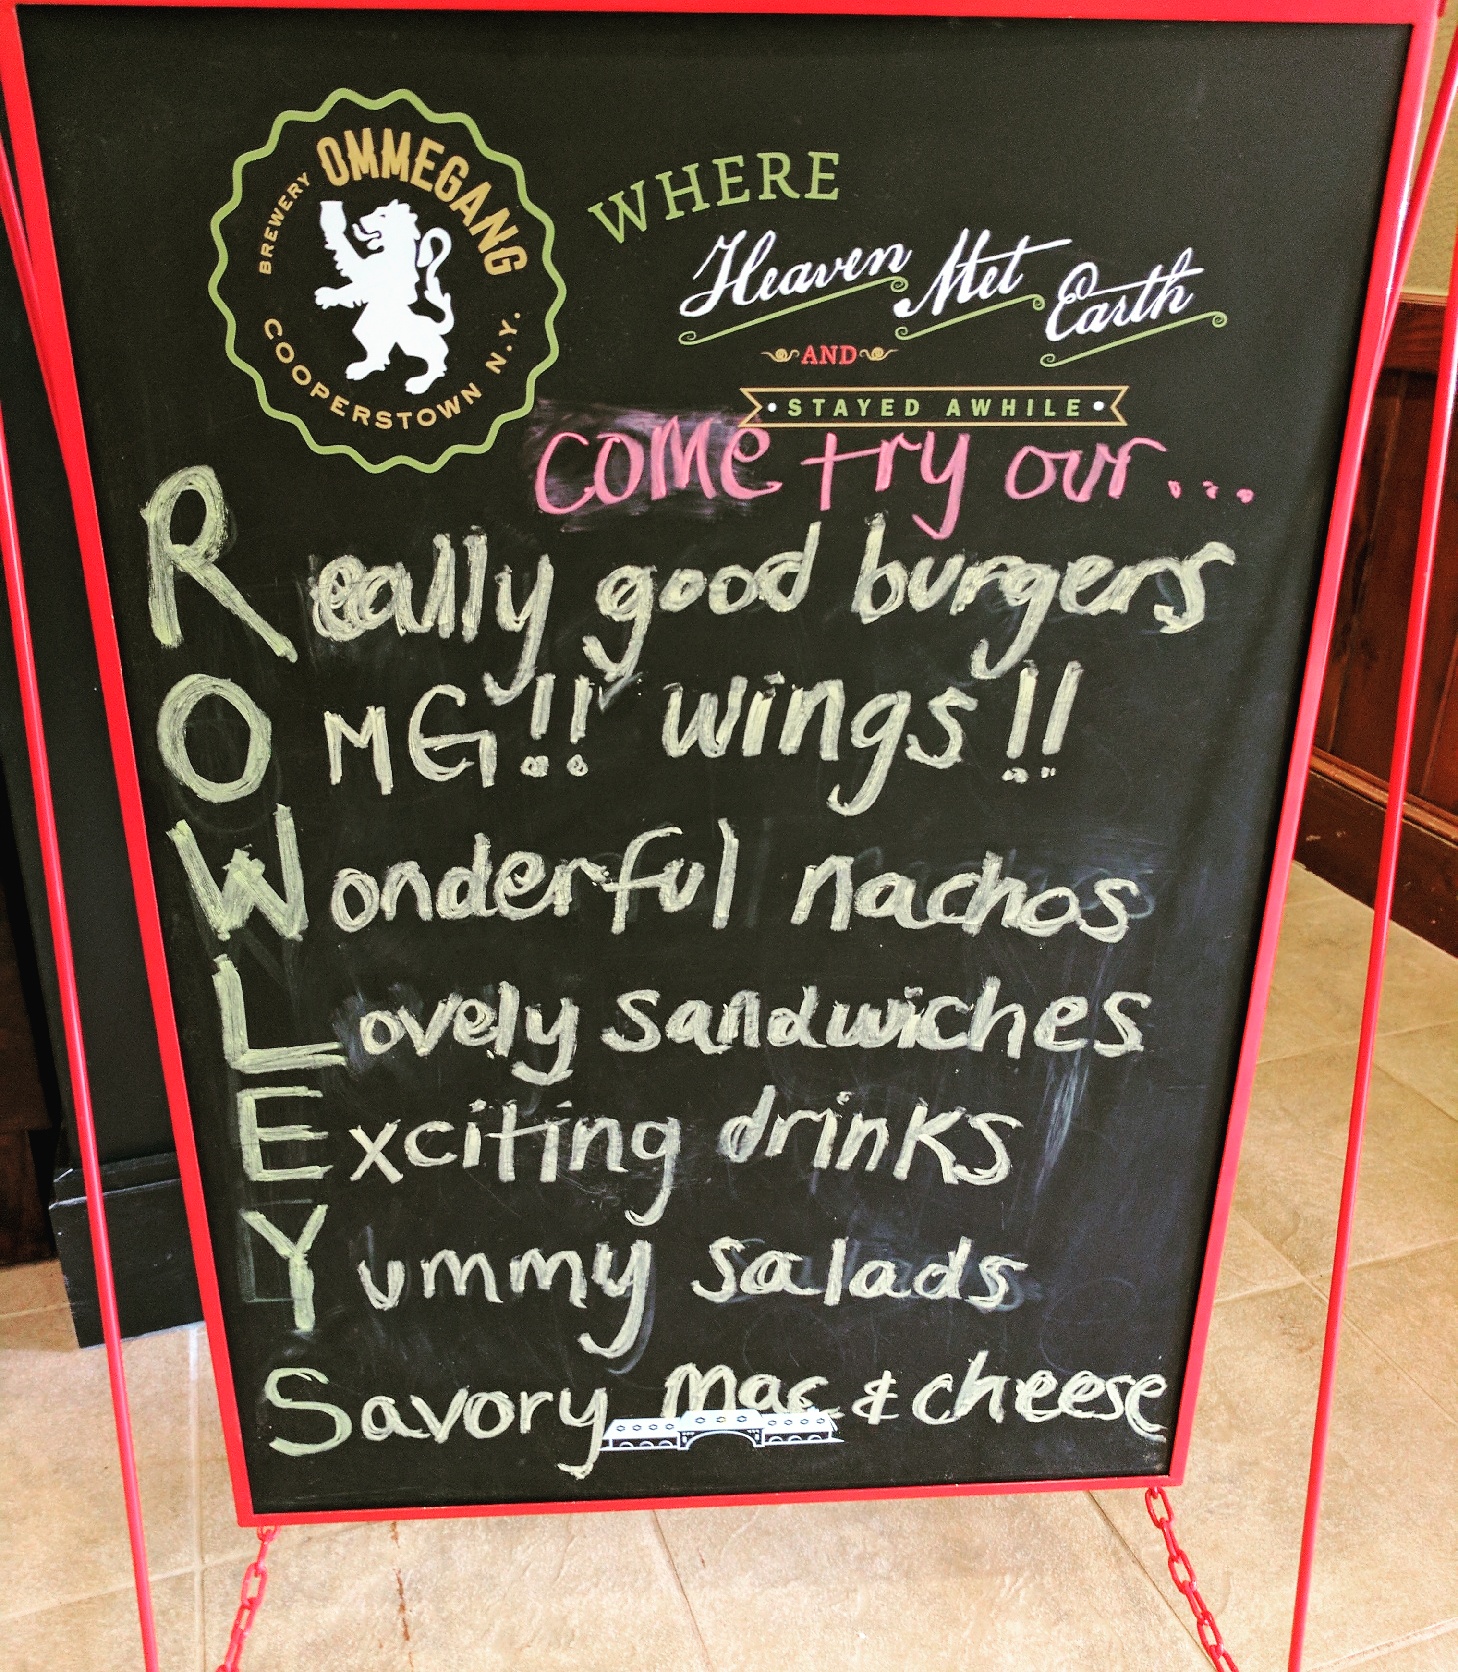 BREWERY OMMEGANG
COOPERSTOWN N.Y.
WHERE
Heaven Met Earth
AND
STAYED AWHILE
come try our...
Really good burgers
OMG!! wings!!
Wonderful nachos
Lovely sandwiches
Exciting drinks
Yummy salads
Savory Mac & cheese